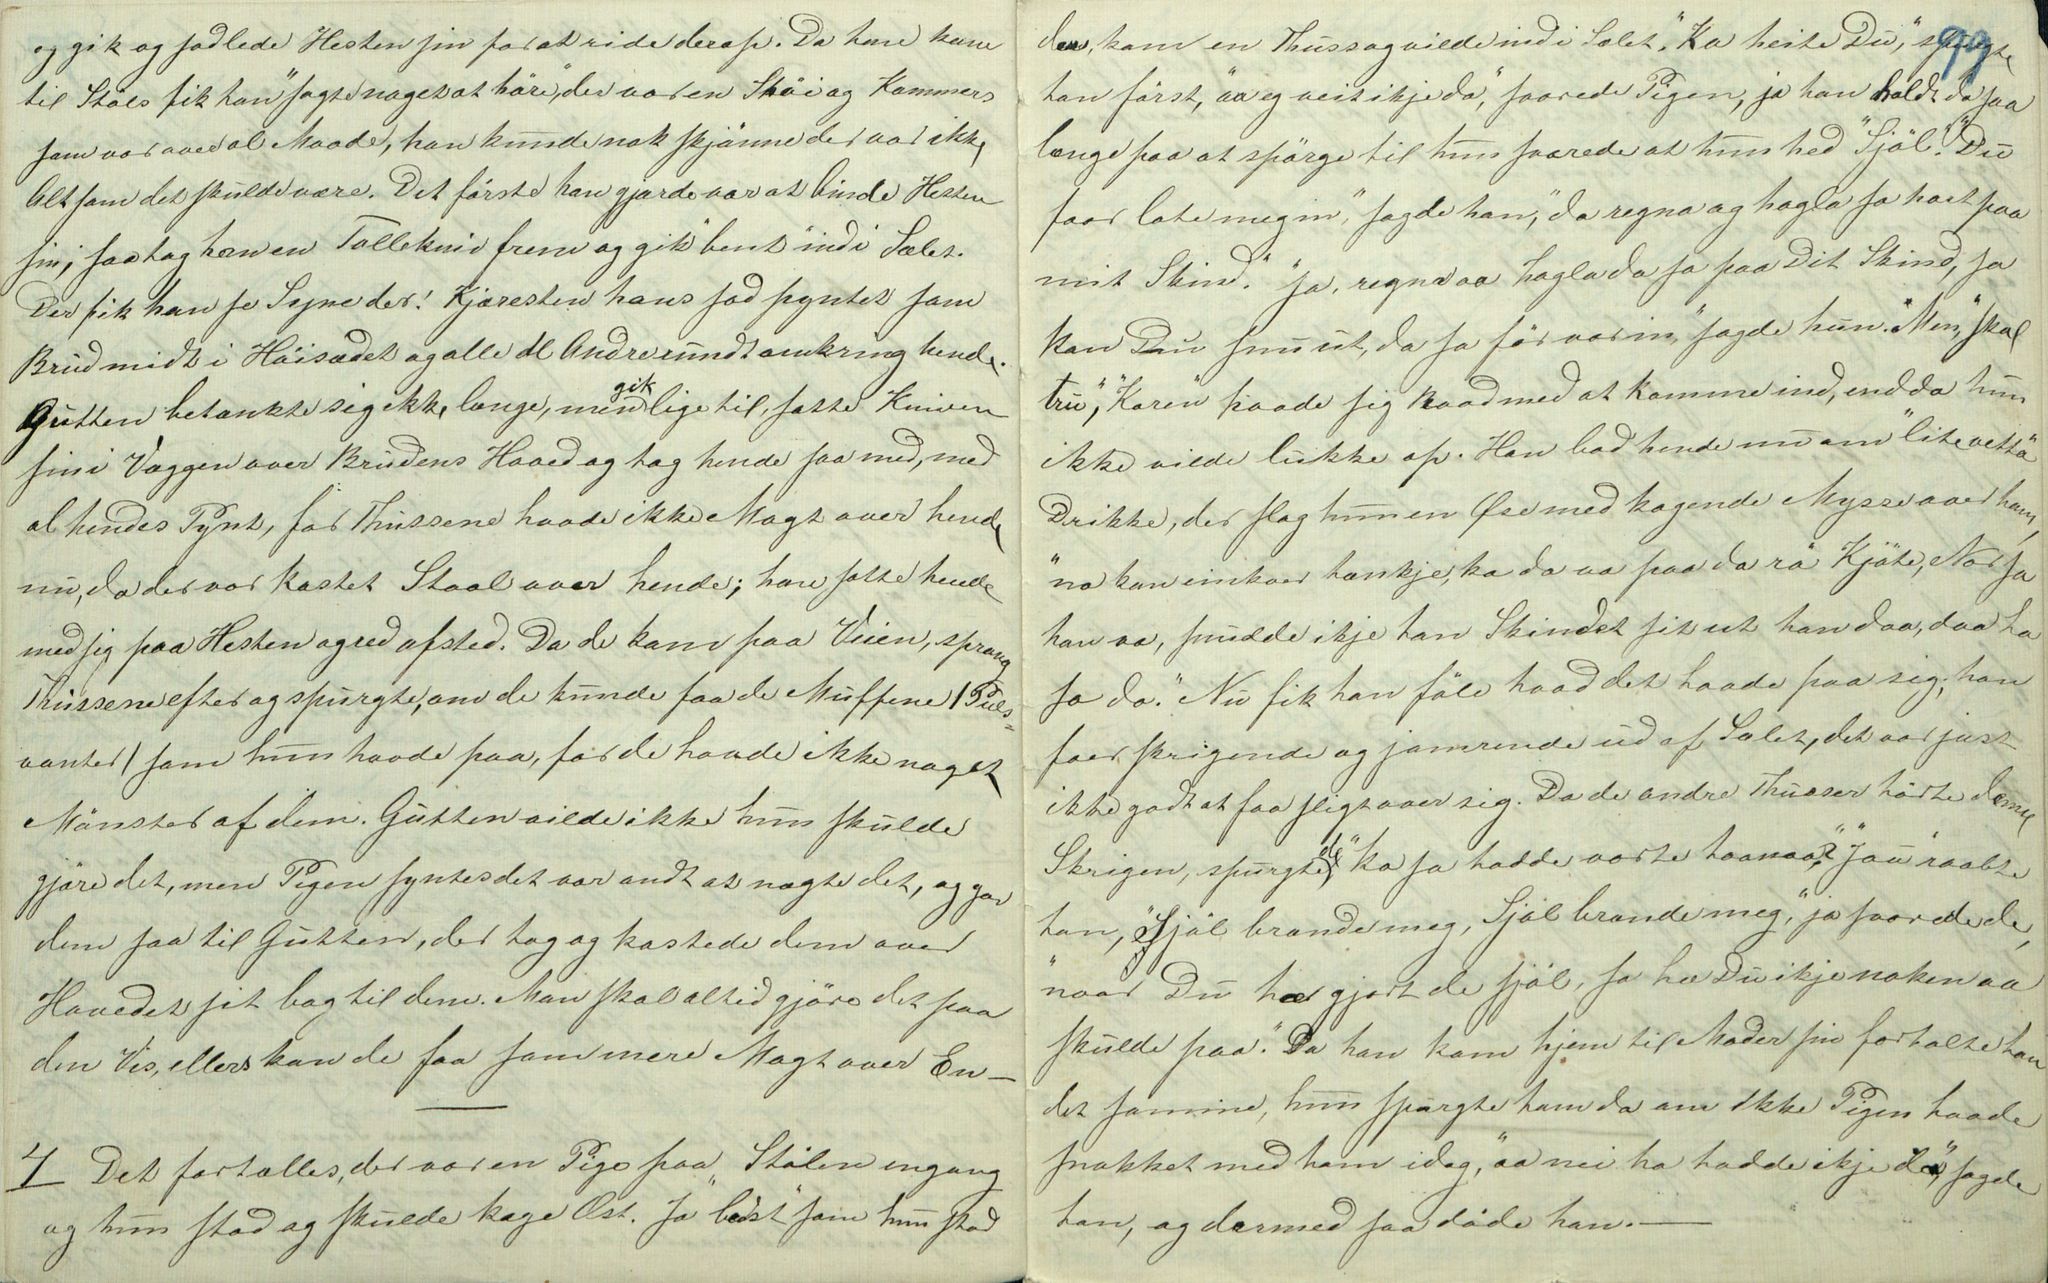 og gik og sadlede Hesten sin for at ride derop. Da han kom
til Stöls fik han "sagte noget at høre", der var en Støi og Kammers
som var over al Maade, han kunde nok skjønne der var ikke
Alt som det skulde være. Det første han gjorde var at binde Hesten
sin, saa tog han en Tollekniv frem og gik "bent" ind i Sælet.
Der fik han se Syne der! Kjæresten hans sad pyntet som
Brud midt i Höisædet og alle de Andre rundt omkring hende.
Gutten betænkte sig ikke længe, men gik lige til, satte Kniven
sin i Væggen over Brudens Hoved og tog hende saa med, med
al hendes Pynt, for Thussene havde ikke Magt over hende
nu, da der var kastet Staal over hende; han satte hende
med sig paa Hesten og red afsted. Da de kom paa Veien, sprang
Thussene efter og spurgte, om de kunde faa de Muffene /Puls-
vanter/ som hun havde paa, for de havde ikke noget
Mønster af dem. Gutten vilde ikke hun skulde
gjøre det, men Pigen syntes det var ondt at nægte det, og gav
dem saa til Gutten, der tog og kastede dem over
Hovedet sit bag til dem. Man skal altid gjøre det paa
den Vis, ellers kan de faa som mere Magt over En —
4 Det fortælles, der var en Pige paa Stölen engang
og hun stod og skulde koge Ost. Ja "bedst" som hun stod
99
der, kom en Thuss og vilde ind i Sælet. "Ka heite Du," spurgte
han först, "aa eg veit ikje da", svarede Pigen, ja han holdt da saa
længe paa at spörge til hun svarede at hun hed "Sjöl". "Du
faar late meg in", sagde han, "da regna og hagla so hært paa
mit Skind." "Ja, regna aa hagla da so paa Dit Skind, so
kan Du snu ut, da so för var in," sagde hun. "Men", skal
tru", "Karen" haade sig Raad med at komme ind, endda hun
ikke vilde lukke op. Han bad hende nu om "lite vetta"
Drikke, der slog hun en Øse med kogende Mysse over ham,
"no kan einkvar tænkje, ka da va paa da rå Kjöte, Nor so
han va, snudde ikje han Skindet sit ut han daa, daa ha
so da." Nu fik han föle hvad det havde paa sig; han
foer skrigende og jamrende ud af Sælet, det var just
ikke godt at faa sligt over sig. Da de andre Thusser hörte denne
Skrigen, spurgte de, "ka so hadde vorte haanaa"? "Jau" raabte
han, "Sjöl brænde meg, Sjöl brænde meg," "ja svarede de,
"naar Du har gjort de sjöl, so he Du ikje noken aa
skulde paa." Da han kom hjem til Moder sin fortalte han
det samme, hun spurgte ham da om ikke Pigen havde
snakket med ham idag, "aa nei ho hadde ikje da", sagde
han, og dermed saa døde han. —